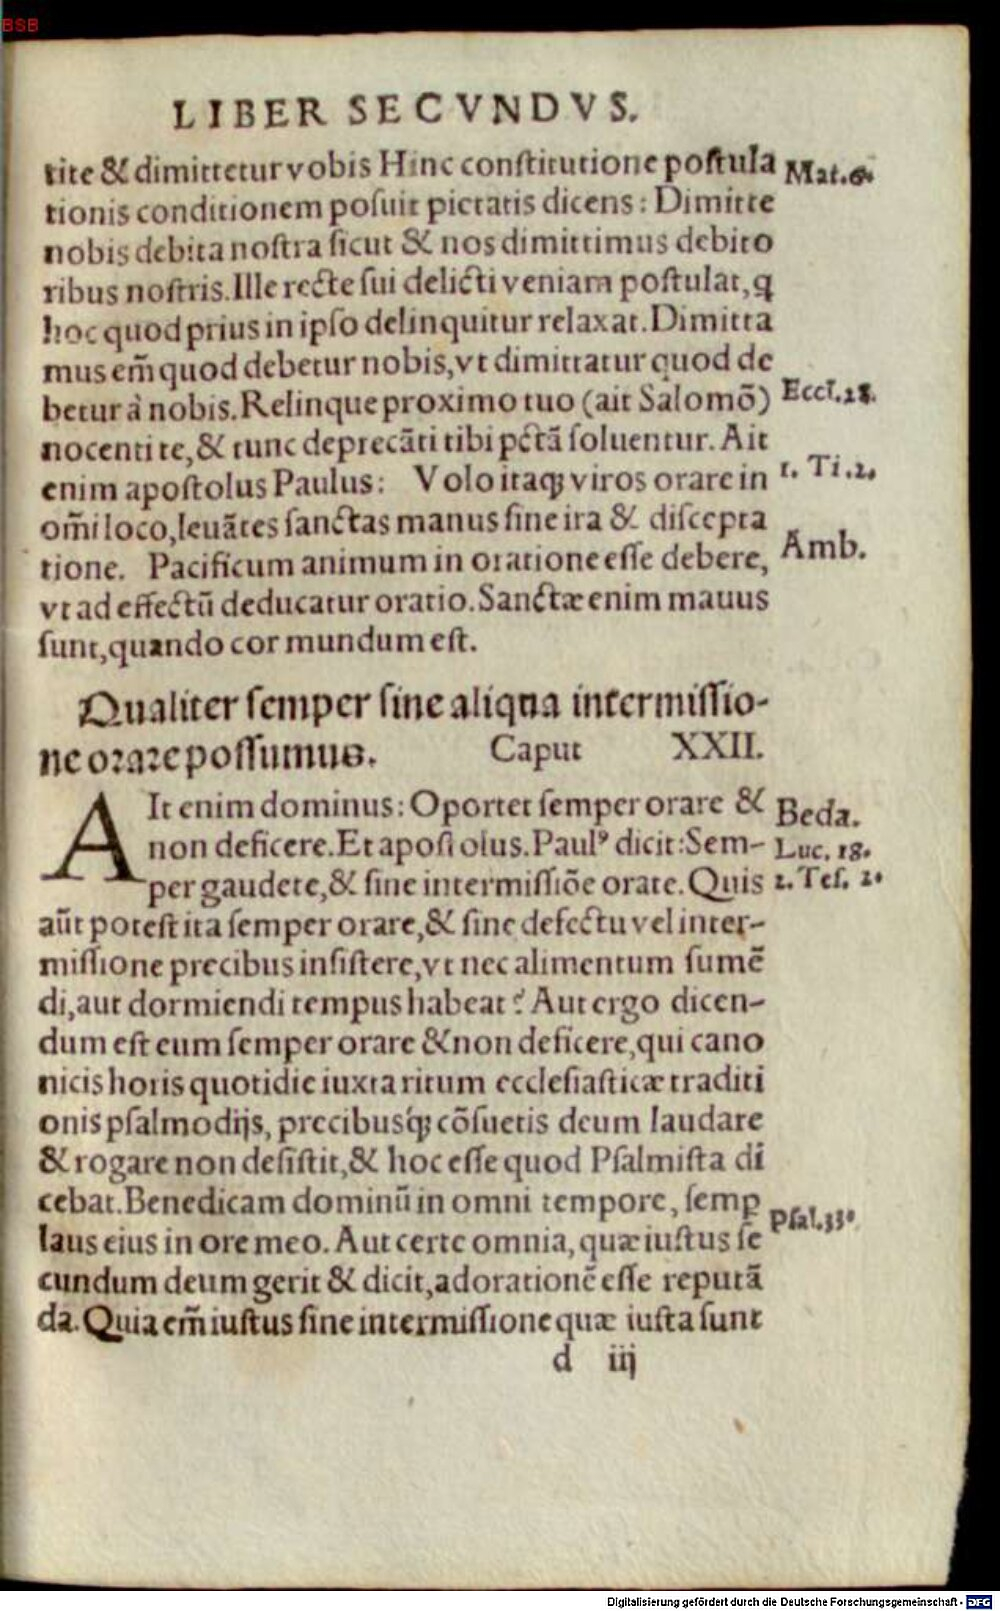 BSB
LIBER SECVNDVS.
tite & dimittetur vobis Hinc constitutione postula Mat.6.
tionis conditionem posuit pietatis dicens: Dimitte
nobis debita nostra sicut & nos dimittimus debito
ribus nostris. Ille recte sui delicti veniam postulat, q
hoc quod prius in ipso delinquitur relaxat. Dimitta
mus em̃ quod debetur nobis, vt dimittatur quod de
betur à nobis. Relinque proximo tuo (ait Salomõ) Eccl.28.
nocenti te, & tunc deprecãti tibi pctã soluentur. Ait
enim apostolus Paulus: Volo itaq; viros orare in 1. Ti.2.
om̃i loco, leuãtes sanctas manus sine ira & discepta
tione. Pacificum animum in oratione esse debere, Amb.
vt ad effectũ deducatur oratio. Sanctæ enim mauus
sunt, quando cor mundum est.
Qualiter semper sine aliqua intermissio-
ne orare possumus. Caput XXII.
AIt enim dominus: Oportet semper orare & Beda.
non deficere. Et apostolus. Paulꝰ dicit: Sem- Luc. 18.
per gaudete, & sine intermissiõe orate. Quis 1. Tes. 2.
aũt potest ita semper orare, & sine defectu vel inter-
missione precibus insistere, vt nec alimentum sumẽ
di, aut dormiendi tempus habeat? Aut ergo dicen-
dum est eum semper orare & non deficere, qui cano
nicis horis quotidie iuxta ritum ecclesiasticæ traditi
onis psalmodijs, precibusq́; cõsuetis deum laudare
& rogare non desistit, & hoc esse quod Psalmista di
cebat. Benedicam dominũ in omni tempore, semp̱ Psal.33.
laus eius in ore meo. Aut certe omnia, quæ iustus se
cundum deum gerit & dicit, ad orationẽ esse reputã
da. Quia em̃ iustus sine intermissione quæ iusta sunt
d iij
Digitalisierung gefördert durch die Deutsche Forschungsgemeinschaft - DFG